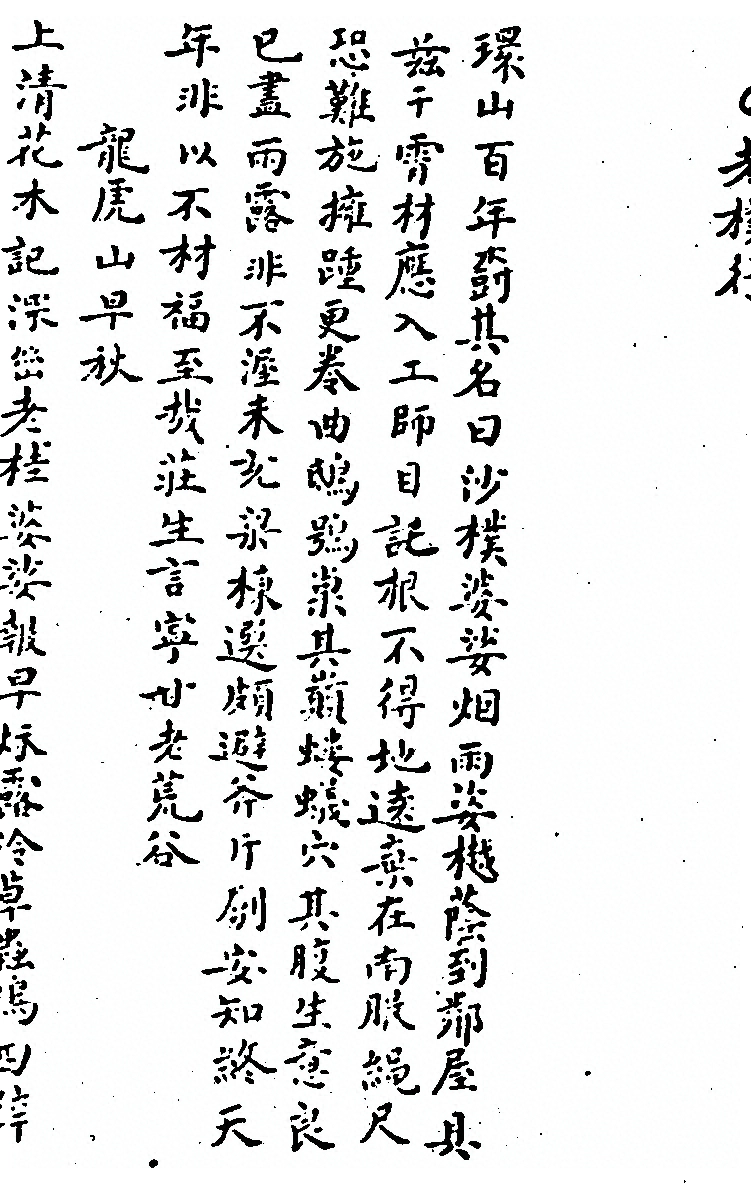 老樸行
環山百年樹其名曰沙樸婆娑烟雨姿樾蔭到鄰屋具
茲干霄材應入工師目託根不得地遠棄在南服繩尺
恐難施擁踵更拳曲鴟鴞巢其巔螻蟻穴其腹生意良
已盡雨露非不渥未充梁棟選頗避斧斤劚安知終天
年非以不材福至哉莊生言寧甘老荒谷
龍虎山早秋
上清花木記深巒老桂婆娑報早秋露冷草蟲鳴四